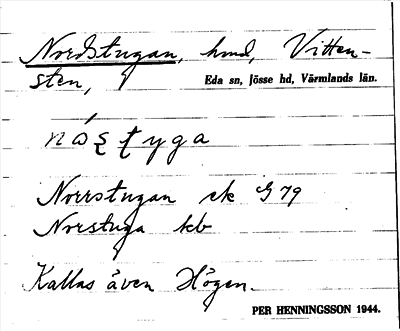 Nordstugan, hmd, Vitten-
sten,
Eda sn, Jösse hd, Värmlands län.
Norrstugan ek G 79
Norstuga kb
Kallas även Högen.
PER HENNINGSSON 1944.